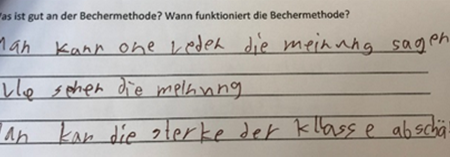 as ist gut an der Bechermethode? Wann funktioniert die Bechermethode?
Man kann one reden die meinung sagen
sehen die meinung
an kan die sterke der Kllasse abschä